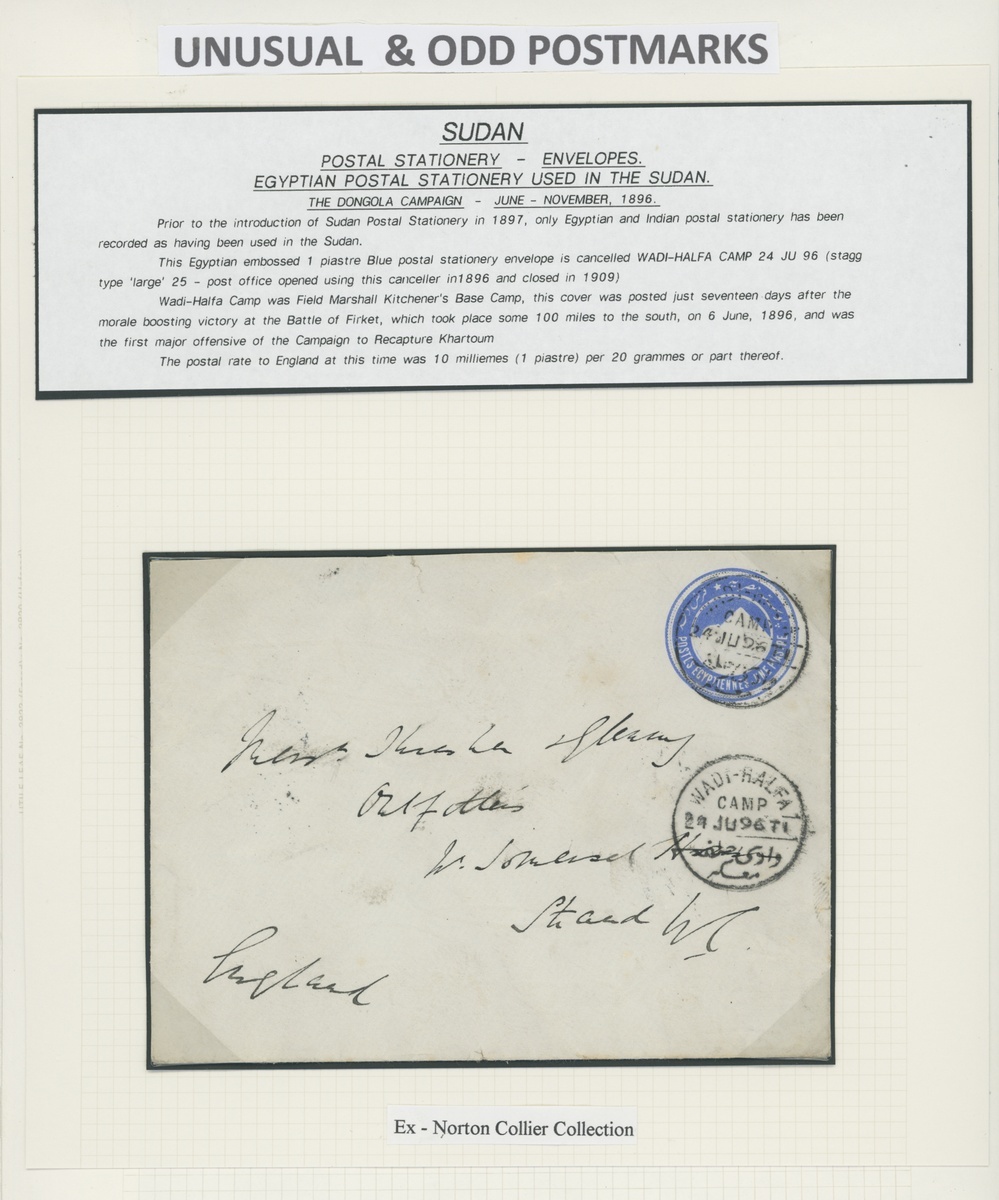 UNUSUAL & ODD POSTMARKS
SUDAN
POSTAL STATIONERY - ENVELOPES.
EGYPTIAN POSTAL STATIONERY USED IN THE SUDAN.
THE DONGOLA CAMPAIGN - JUNE - NOVEMBER, 1896.
Prior to the introduction of Sudan Postal Stationery in 1897, only Egyptian and Indian postal stationery has been
recorded as having been used in the Sudan.
This Egyptian embossed 1 piastre Blue postal stationery envelope is cancelled WADI-HALFA CAMP 24 JU 96 (stagg
type 'large' 25 - post office opened using this canceller in1896 and closed in 1909)
Wadi-Halfa Camp was Field Marshall Kitchener's Base Camp, this cover was posted just seventeen days after the
morale boosting victory at the Battle of Firket, which took place some 100 miles to the south, on 6 June, 1896, and was
the first major offensive of the Campaign to Recapture Khartoum
The postal rate to England at this time was 10 milliemes (1 piastre) per 20 grammes or part thereof.
CAMP
24 JU 96
POSTES EGYPTIENNES
Messrs Thresher & Glenny
Outfitters
WADI-HALFA
CAMP
24 JU 96 T1
وادى حلفا
معسكر
Somerset
Strand WC.
England
Ex - Norton Collier Collection